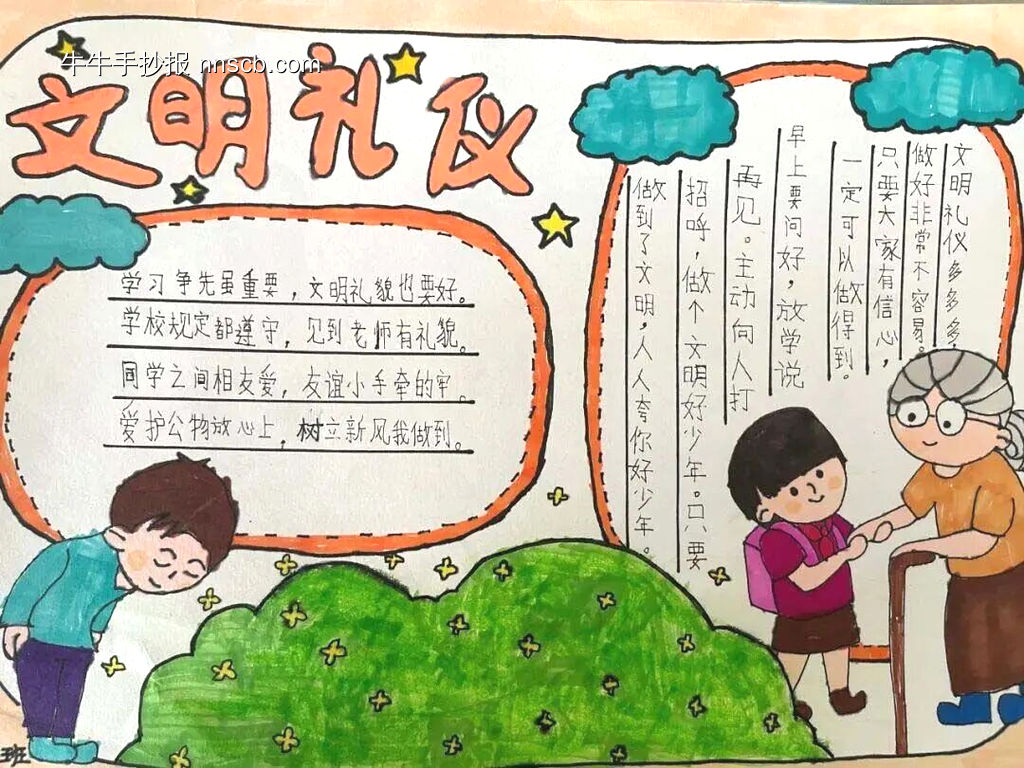 牛牛手抄报 nnscb.com
文明礼仪
学习争先虽重要，文明礼貌也要好。
学校规定都遵守，见到老师有礼貌。
同学之间相友爱，友谊小手牵的牢。
爱护公物放心上，树立新风我做到。
文明礼仪多多多，
做好非常不容易。
只要大家有信心，
一定可以做得到。
早上要问好，放学说
再见。主动向人打
招呼，做个文明好少年。只要
做到了文明，人人夸你好少年。
班